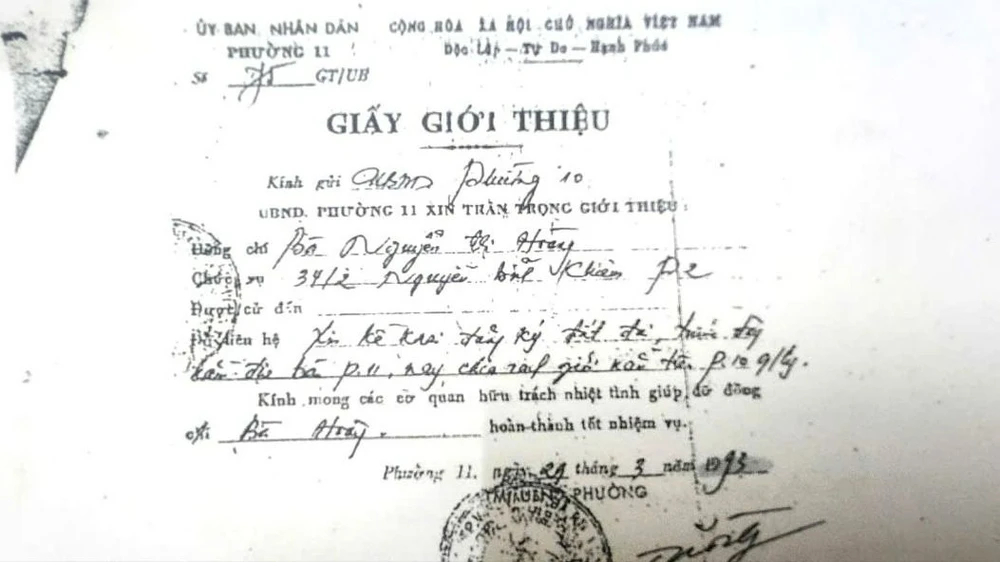 ỦY BAN NHÂN DÂN CỘNG HÒA XÃ HỘI CHỦ NGHĨA VIỆT NAM
PHƯỜNG 11 Độc Lập - Tự Do - Hạnh Phúc
Số 75 GT/UB
GIẤY GIỚI THIỆU
Kính gửi UBND phường 10
UBND. PHƯỜNG 11 XIN TRÂN TRỌNG GIỚI THIỆU :
Đồng chí Bà Nguyễn thị Hoàng
Chức vụ 34/2 Nguyễn Khiêm P2
Được cử đến
Để liên hệ Xin kê khai đăng ký đất đai, trước đây
P.11, nay chia ranh giới P.10 q/lý.
Kính mong các cơ quan hữu trách nhiệt tình giúp đỡ đồng
chí Bà Hoàng. hoàn thành tốt nhiệm vụ.
Phường 11, ngày 29 tháng 3 năm 1993
TM/UBND PHƯỜNG